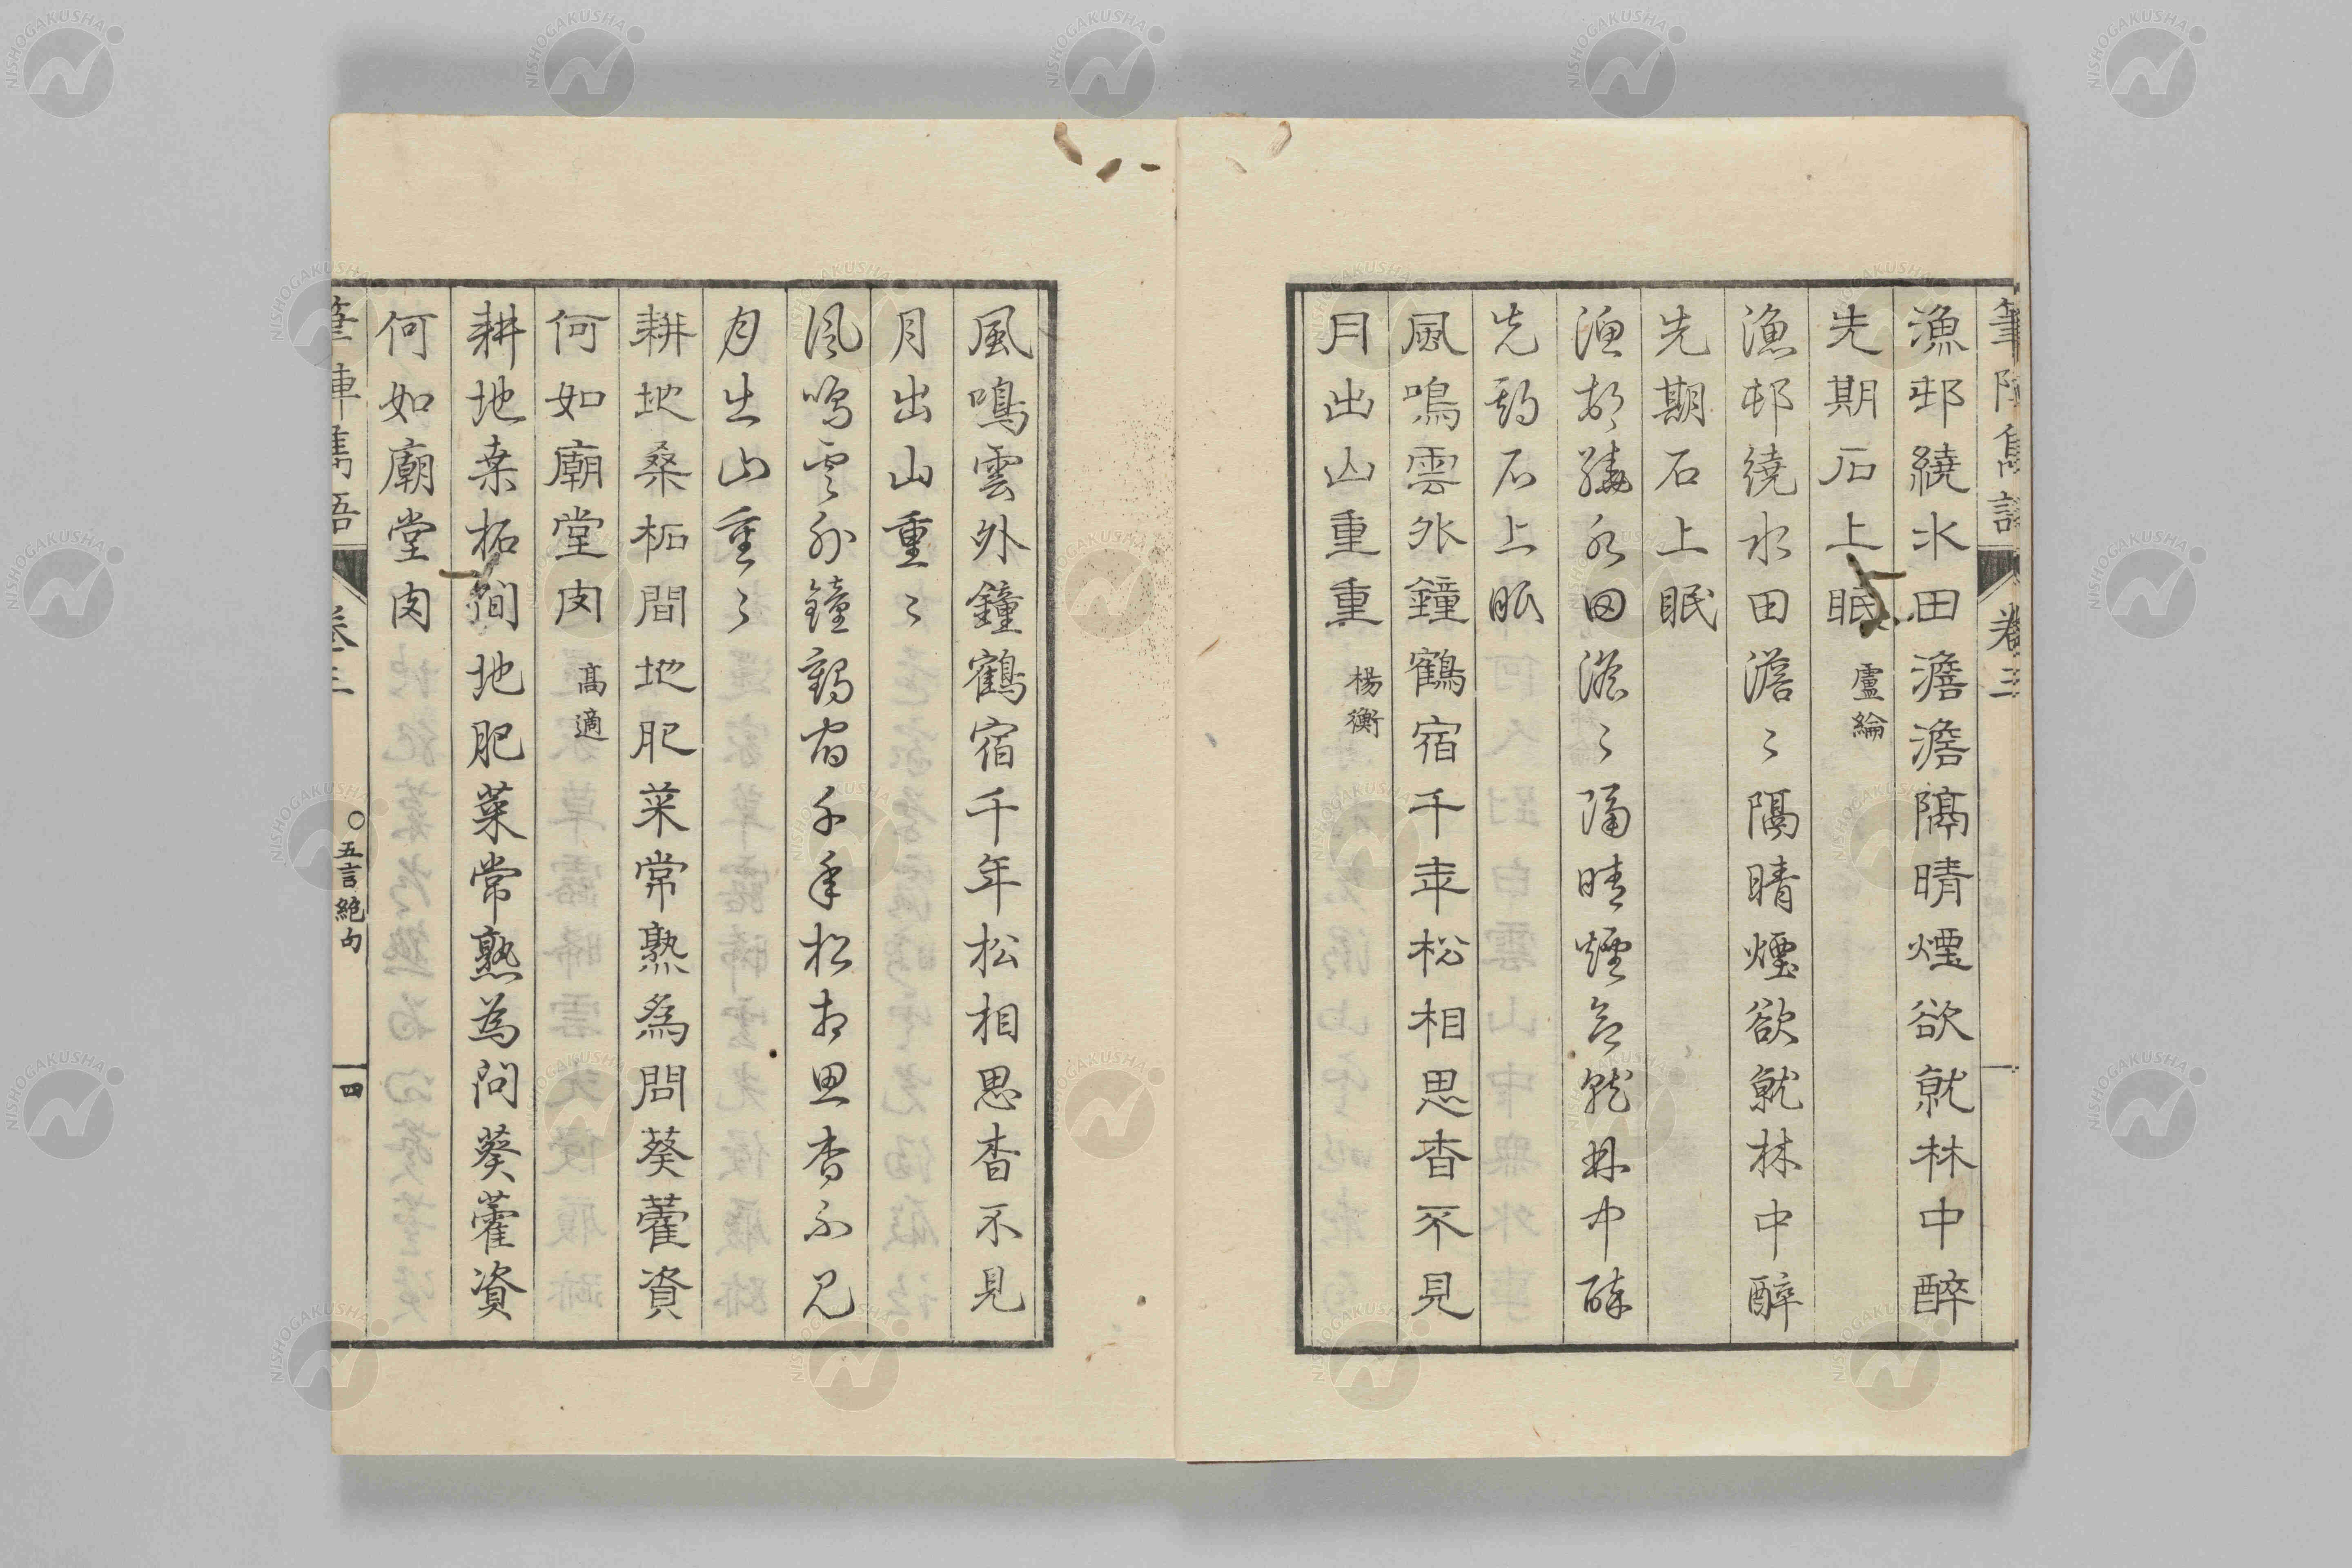 漁邨繞水田澹澹隔晴煙欲就林中醉
先期石上眠 盧綸
漁邨繞水田澹〻隔晴煙欲就林中醉
先期石上眠
漁邨繞水田澹〻隔晴煙欲就林中醉
先期石上眠
風鳴雲外鐘鶴宿千年松相思杳不見
月出山重重 楊衡
風鳴雲外鐘鶴宿千年松相思杳不見
月出山重〻
風鳴雲外鐘鶴宿千年松相思杳不見
月出山重〻
耕地桑柘間地肥菜常熟為問葵藿資
何如廟堂肉 高適
耕地桒柘間地肥菜常熟為問葵藿資
何如廟堂肉
筆陣雋語 卷三 〇五言絶句 四